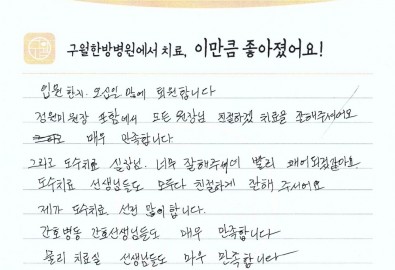 구월한방병원에서 치료, 이만큼 좋아졌어요!
입원한지. 오십일 만에 퇴원합니다
정원미원장 포함에서 모든 원장님 친절하게 치료을 잘해주셔어요
매우 만족합니다.
그리고 도수치료 실장님. 너무 잘해주셔어 빨리
도수치료 선생님들도 모두다 친절하게 잘해 주셔어요
제가 도수치료. 선전 많이 합니다.
간호병동 간호선생님들도 매우 만족합니다
물리 치료실 선생님들도 매우 만족합니다